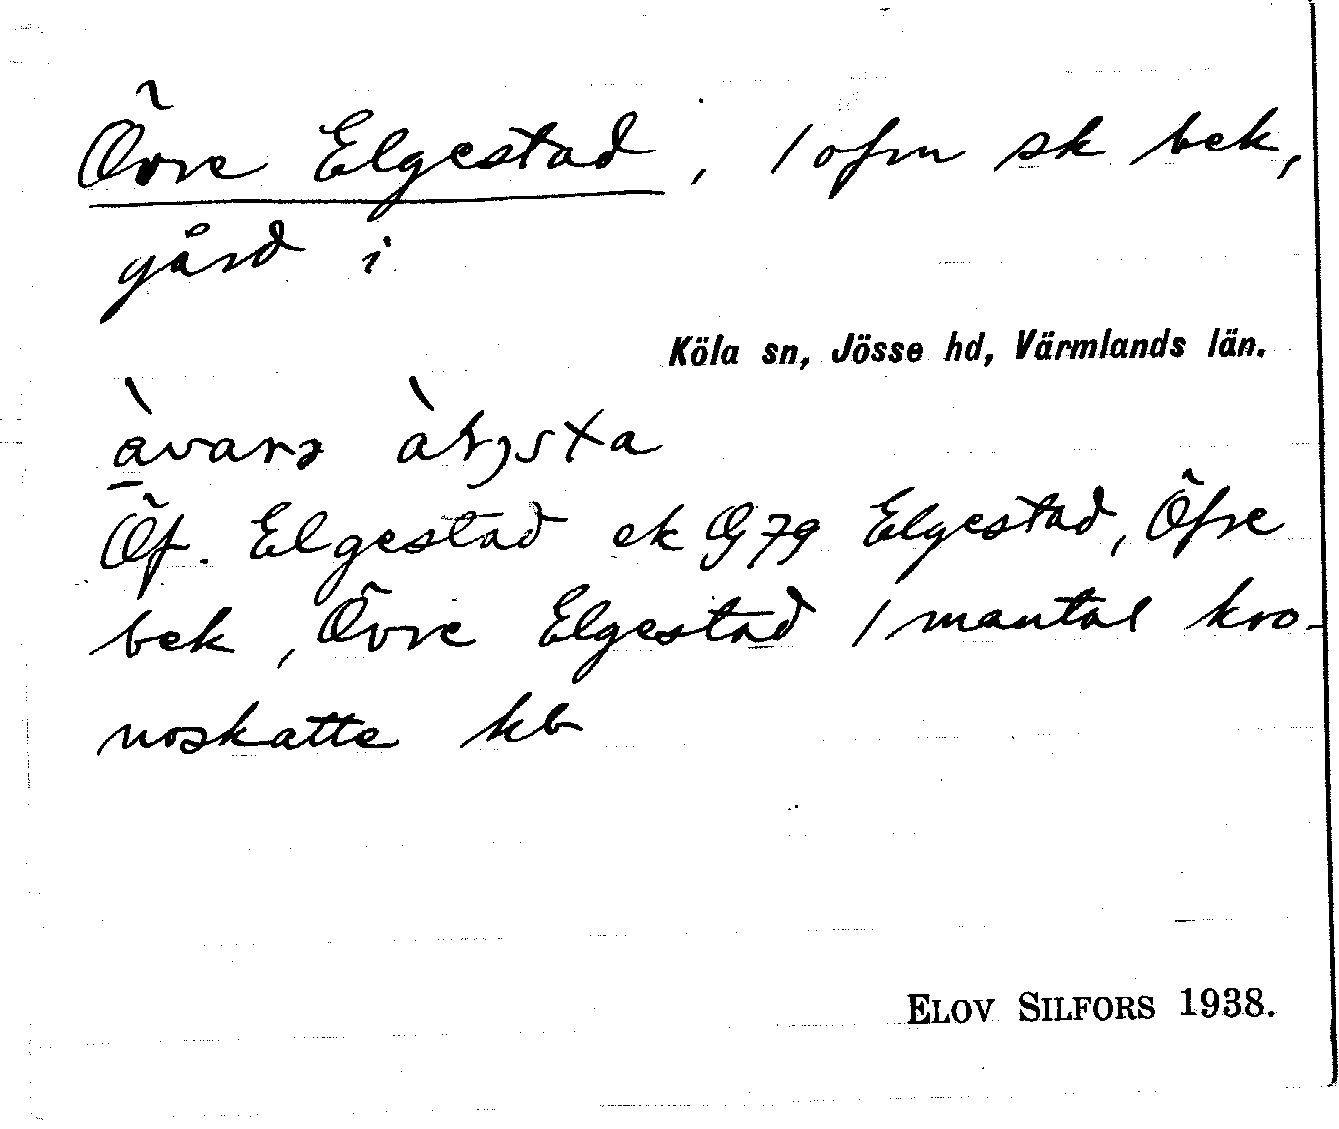 Övre Elgestad, 1 ofm sk bek,
gård i
Köla sn, Jösse hd, Värmlands län.
Öf. Elgestad ek G79 Elgestad, Öfre
bek, Övre Elgestad 1 mantal kro-
noskatte kb
ELOV SILFORS 1938.